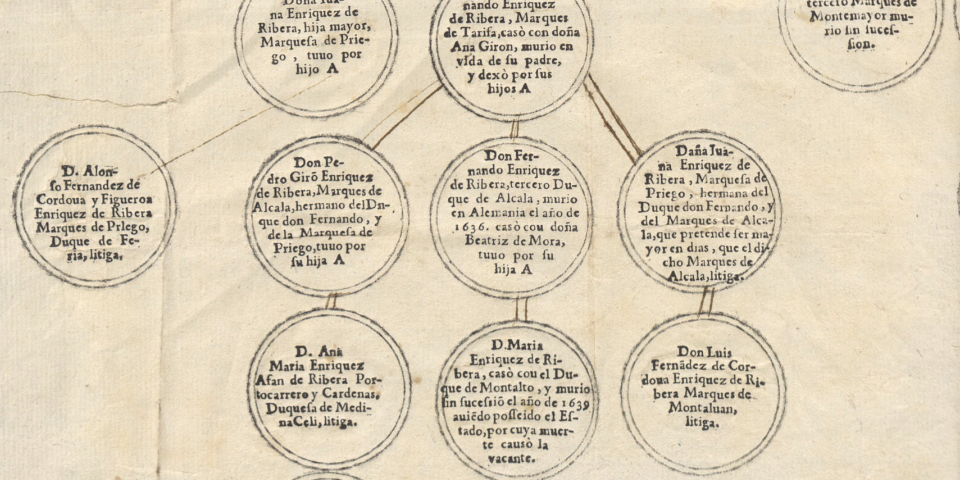 Doña Iua-
na Enriquez de
Ribera, hija mayor,
Marquesa de Prie-
go, tuuo por
hijo A
nando Enriquez
de Ribera, Marques
de Tarifa, casò con doña
Ana Giron, murio en
vida de su padre,
y dexò por sus
hijos A
tercero Marques de
Montemayor mu-
rio sin suces-
sion.
D. Alon-
so Fernandez de
Cordoua y Figueroa
Enriquez de Ribera
Marques de Priego,
Duque de Fe-
ria, litiga.
Don Pe-
dro Girō Enriquez
de Ribera, Marques de
Alcala, hermano del Du-
que don Fernando, y
de la Marquesa de
Priego, tuuo por
su hija A
Don Fer-
nando Enriquez
de Ribera, tercero Du-
que de Alcala, murio
en Alemania el año de
1636. casò cou doña
Beatriz de Mora,
tuuo por su
hija A
Daña Iua-
na Enriquez de
Ribera, Marquesa de
Priego, hermana del
Duque don Fernando, y
del Marques de Alca-
la, que pretende ser ma-
yor en dias, que el di-
cho Marques de
Alcala, litiga.
D. Ana
Maria Enriquez
Afan de Ribera Por-
tocarrero y Cardenas,
Duquesa de Medi-
naCeli, litiga.
D. Maria
Enriquez de Ri-
bera, casò cou el Du-
que de Montalto, y murio
sin sucessiō el año de 1639
auiēdo posseido el Es-
tado, por cuya muer-
te causò la
vacante.
Don Luis
Fernādez de Cor-
doua Enriquez de Ri-
bera Marques de
Montaluan,
litiga.